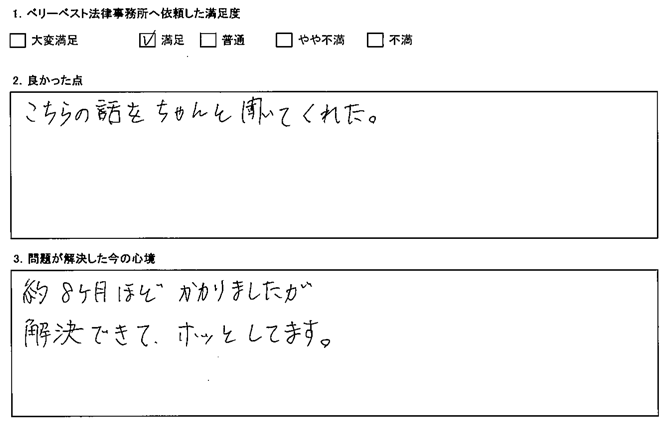 1. ベリーベスト法律事務所へ依頼した満足度
□ 大変満足 ☑ 満足 □ 普通 □ やや不満 □ 不満
2. 良かった点
こちらの話をちゃんと聞いてくれた。
3. 問題が解決した今の心境
約8ケ月ほどかかりましたが
解決できて、ホッとしてます。